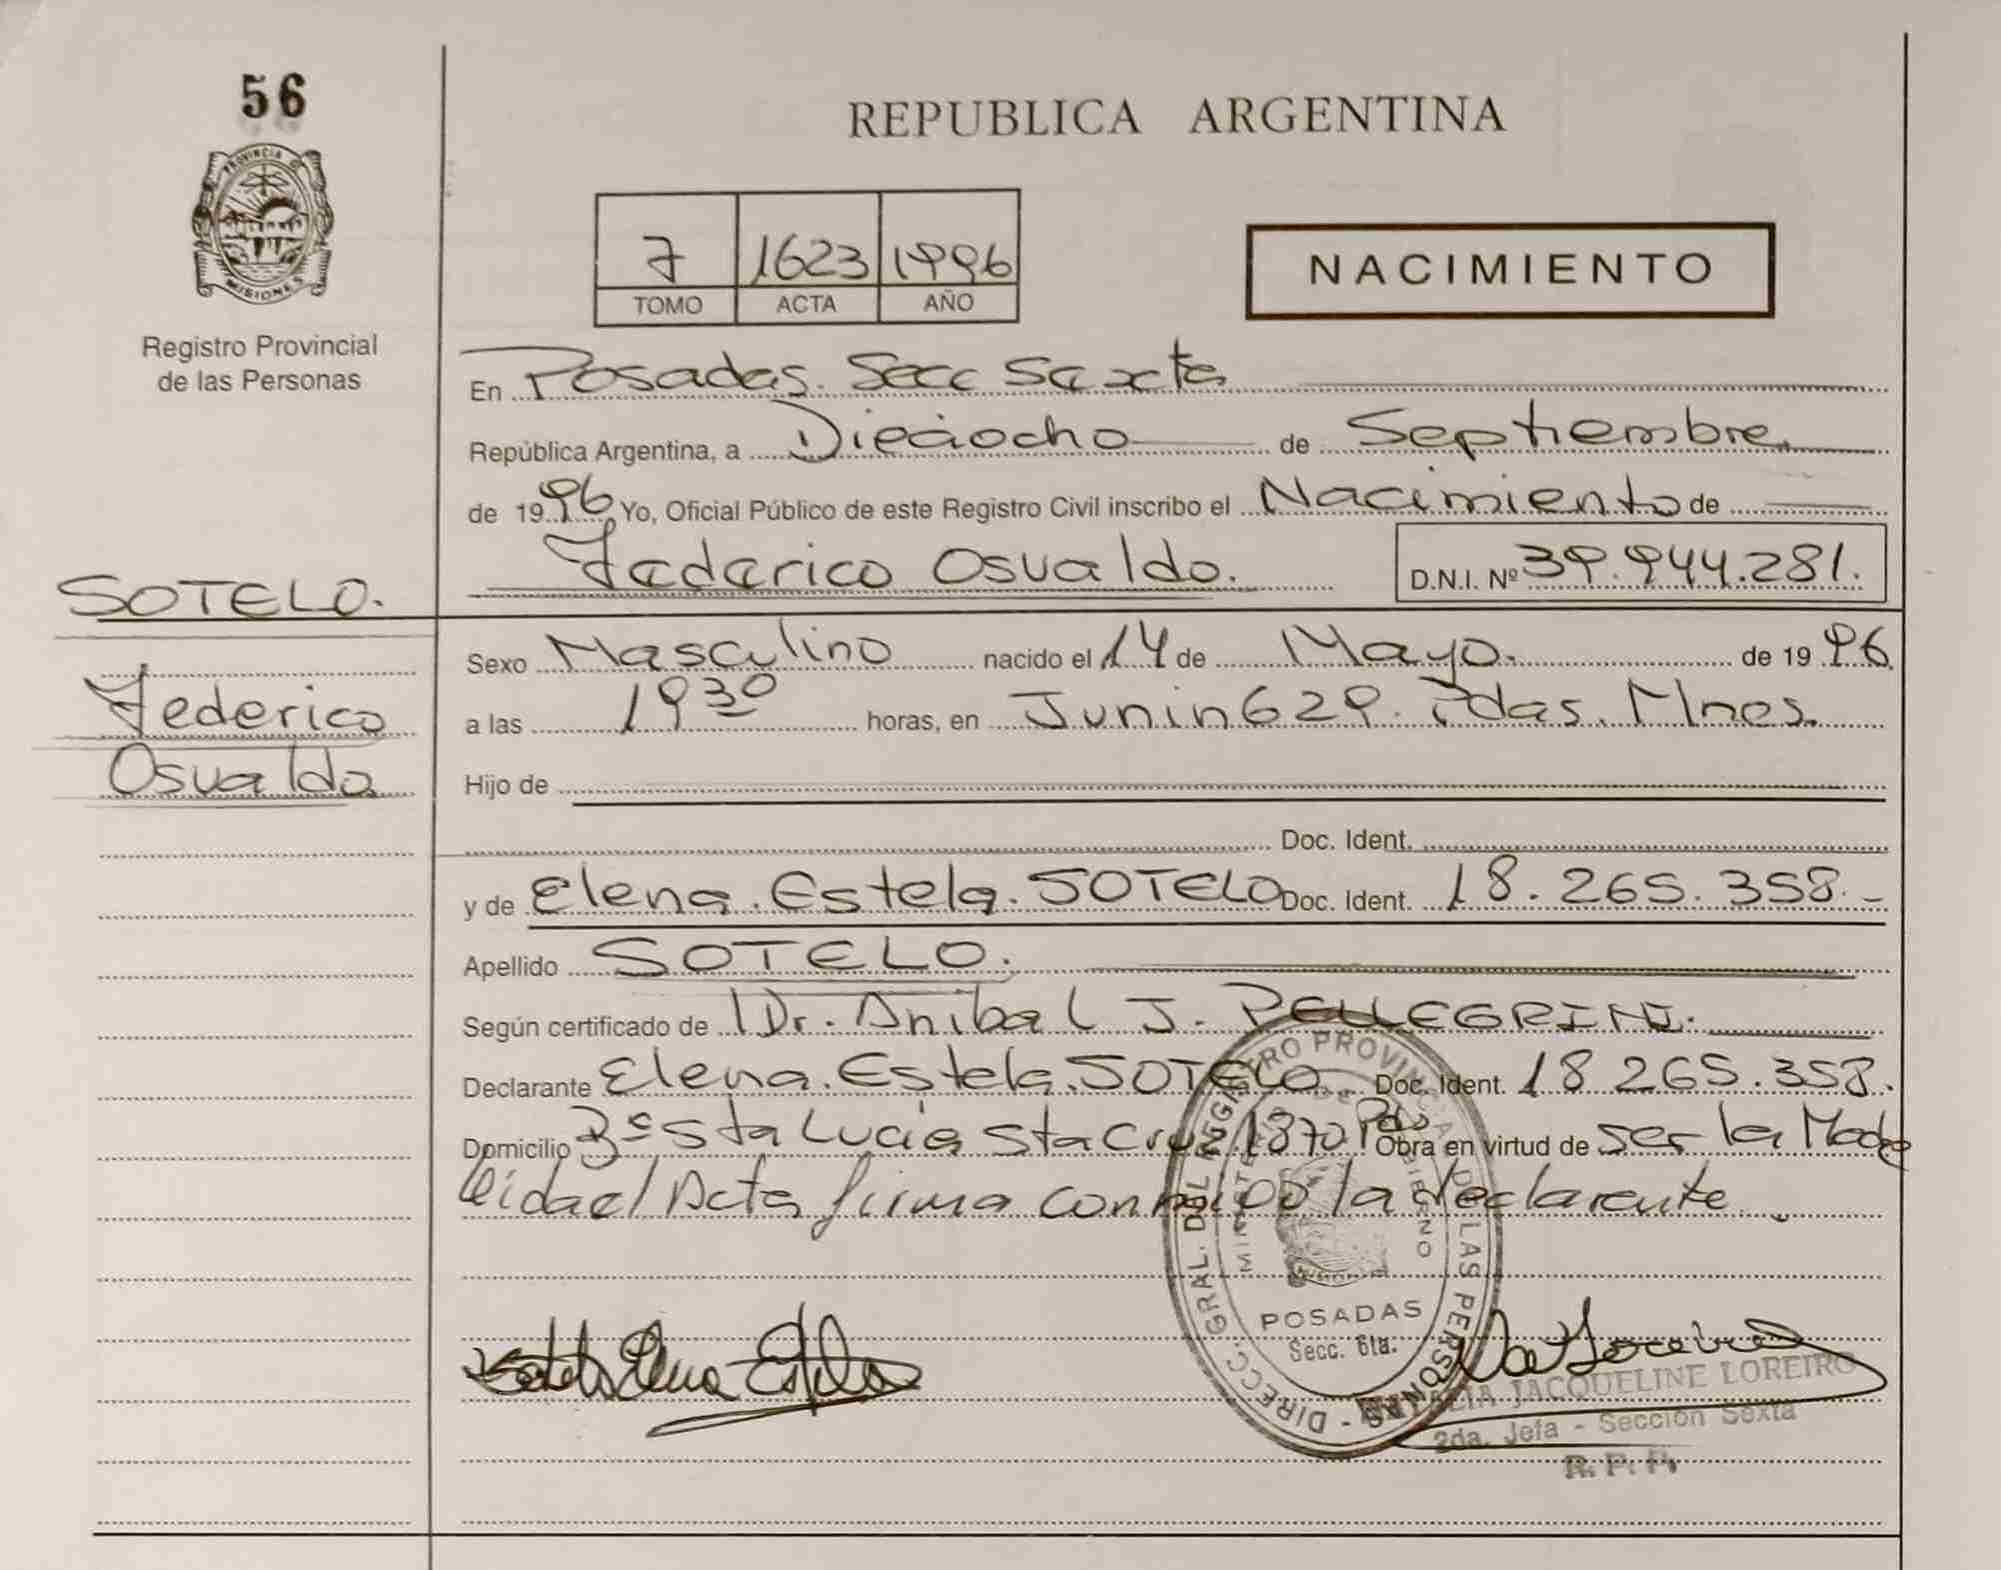 56
PROVINCIA D
MISIONES
Registro Provincial
de las Personas
SOTELO.
Federico
Osvaldo
REPUBLICA ARGENTINA
7 1623 1996
TOMO ACTA AÑO
NACIMIENTO
En Posadas. Secc Sexta
República Argentina, a Dieciocho de Septiembre
de 1996 Yo, Oficial Público de este Registro Civil inscribo el Nacimiento de
Federico Osvaldo. D.N.I. Nº 39.944.281.
Sexo Masculino nacido el 14 de Mayo. de 1996
a las 19 30 horas, en Junin 629. Pdas. Mnes.
Hijo de
Doc. Ident.
y de Elena. Estela. SOTELO Doc. Ident. 18.265.358.-
Apellido SOTELO.
Según certificado de Dr. Anibal J. PELLEGRINI.
Declarante Elena. Estela. SOTELO Doc. Ident. 18 265.358.
Domicilio Bº Sta Lucia Sta Cruz 1370 Pdas Obra en virtud de ser la Madre
leida el Acta firma conmigo la declarante
DIRECC. GRAL. DEL REGISTRO PROVINCIAL DE LAS PERSONAS -
POSADAS
Secc. 6ta.
Sotelo Elena Estela
JACQUELINE LOREIRO
2da. Jefa - Sección Sexta
R. P. P.